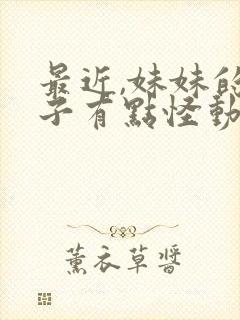 最近,妹妹的
子有點怪動
薰衣草醬